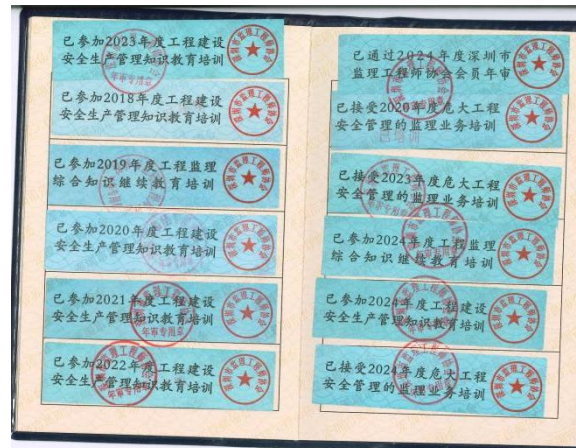 已参加2023年度工程建设
安全生产管理知识教育培训
已参加2018年度工程建设
安全生产管理知识教育培训
已参加2019年度工程监理
综合知识继续教育培训
已参加2020年度工程建设
安全生产管理知识教育培训
已参加2021年度工程建设
安全生产管理知识教育培训
年审专用章
已参加2022年度工程建设
安全生产管理知识教育培训
已通过2024年度深圳市
监理工程师协会会员年审
已接受2020年度危大工程
安全管理的监理业务培训
已接受2023年度危大工程
安全管理的监理业务培训
已参加2024年度工程监理
综合知识继续教育培训
已参加2024年度工程建设
安全生产管理知识教育培训
已接受2024年度危大工程
安全管理的监理业务培训